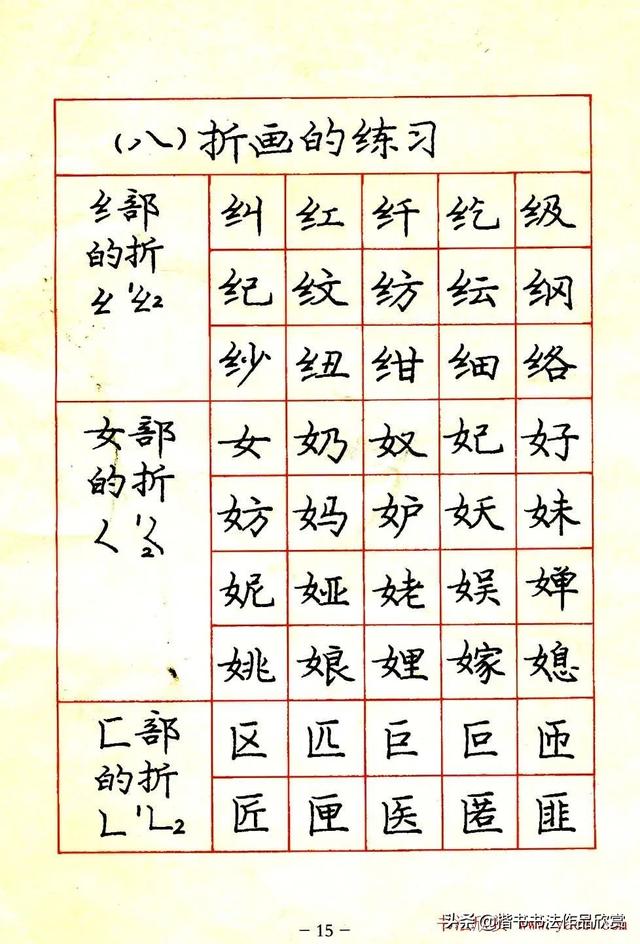 （八）折画的练习
纟部
的折
纠 红 纤 纥 级
纪 纹 纺 纭 纲
纱 纽 绀 细 络
女部
的折
女 奶 奴 妃 好
妨 妈 妒 妖 妹
妮 娅 姥 娱 婵
姚 娘 娌 嫁 媳
匚部
的折
区 匹 巨 叵 匝
匠 匣 医 匿 匪
头条@楷书书法作品欣赏
- 15 -